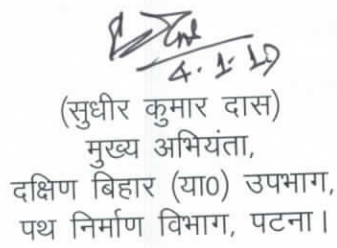 4.1.19
(सुधीर कुमार दास)
मुख्य अभियंता,
दक्षिण बिहार (या0) उपभाग,
पथ निर्माण विभाग, पटना।